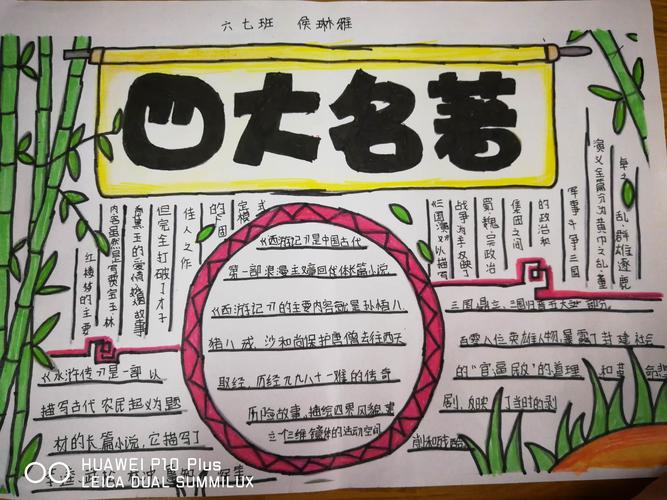 六七班 侯琳雅
四大名著
红楼梦的主要
内容虽然是写贾宝玉林
与黛玉的爱情婚姻故事
但完全打破了才子
佳人之作
的
定模式
《西游记》是中国古代
第一部浪漫主义章回体长篇小说
《西游记》的主要内容就是孙悟八
猪八戒、沙和尚保护唐僧去往西天
取经，历经九九八十一难的传奇
历险故事，描绘四界风貌
立个三维镜像的运动空间
《三国演义》以描写
战争为主反映了
蜀魏 政治
集团之间
的政治和
军事斗争三国
演义全篇分为黄巾之乱董
卓之乱群雄逐鹿
三国鼎立、三国归晋五大 部分
百零八位英雄人物暴露了封建社会
的"官逼民反"的道理
剧，反映了当时的
《水浒传》是一部以
描写古代农民起义为题
材的长篇小说，它描写了
HUAWEI P10 Plus
LEICA DUAL SUMMILUX